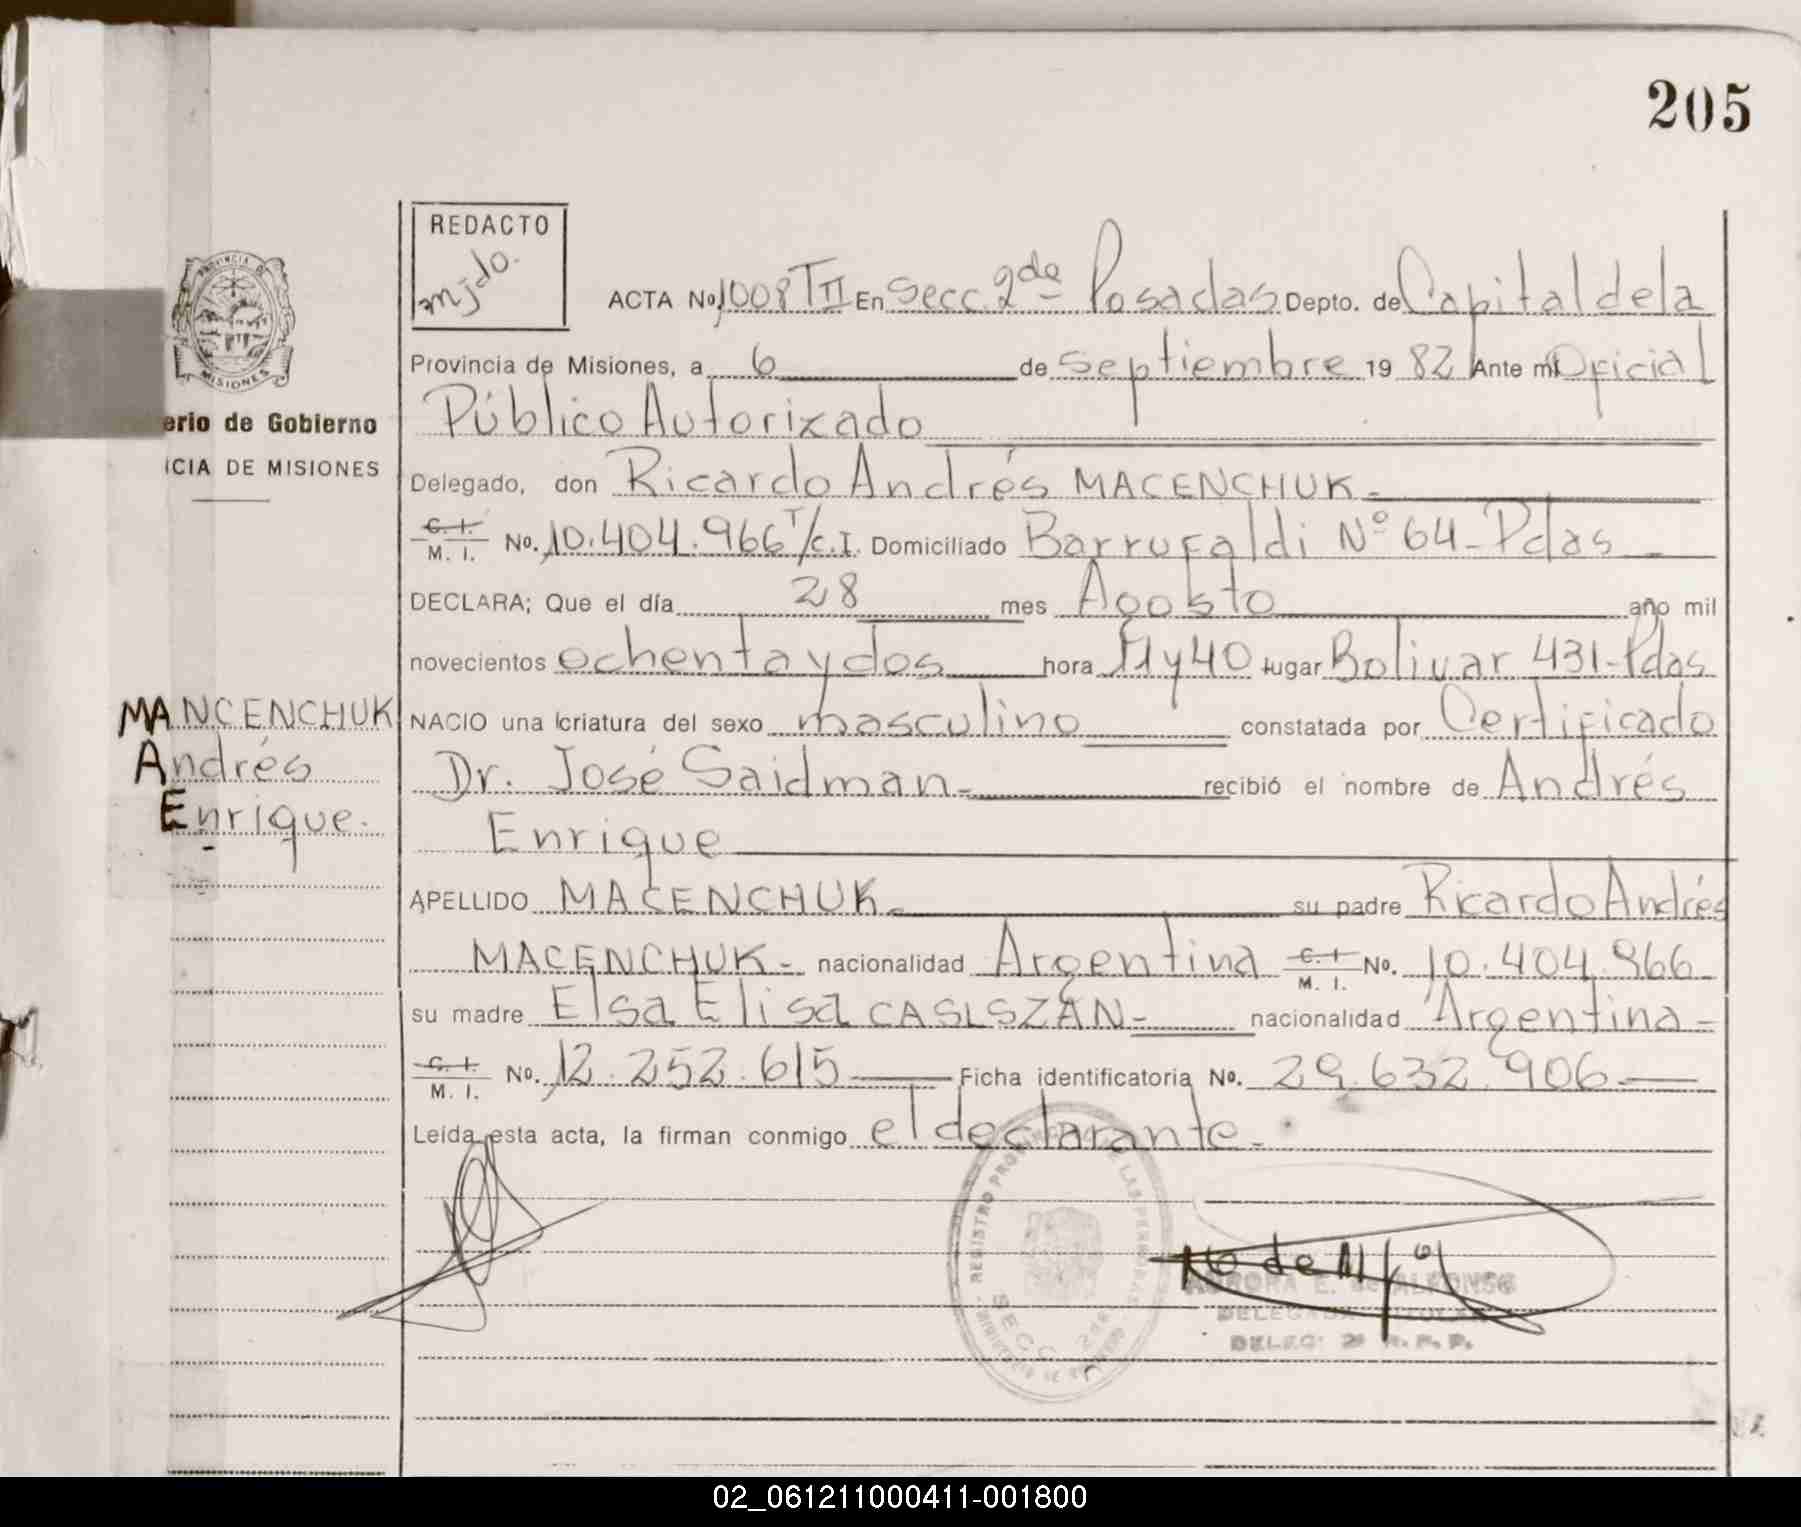 205
REDACTO
mjdo.
ACTA No. 1008 TII En Secc. 2da Posadas Depto. de Capital de la
Provincia de Misiones, a 6 de Septiembre 19 82 Ante mí Oficial
Público Autorizado
PROVINCIA DE
MISIONES
erio de Gobierno
ICIA DE MISIONES
Delegado, don Ricardo Andrés MACENCHUK-
C. I. M. I. No. 10.404.966 T/C.I. Domiciliado Barrufaldi Nº 64-Pdas
DECLARA; Que el día 28 mes Agosto año mil
novecientos ochenta y dos hora 11 y 40 lugar Bolivar 431-Pdas
MANCENCHUK
Andrés
Enrique.
NACIO una criatura del sexo masculino constatada por Certificado
Dr. José Saidman- recibió el nombre de Andrés
Enrique
APELLIDO MACENCHUK- su padre Ricardo Andrés
MACENCHUK- nacionalidad Argentina C. I. M. I. No. 10.404.966
su madre Elsa Elisa CASLSZAN- nacionalidad Argentina-
C. I. M. I. No. 12.252.615 Ficha identificatoria No. 29.632.906
Leída esta acta, la firman conmigo el declarante-
REGISTRO PROVINCIAL DE LAS PERSONAS
SECC. 2da.
AURORA E. de ALFONSO
DELEGADA TITULAR
DELEG. 2ª R. P. P.
02_061211000411-001800